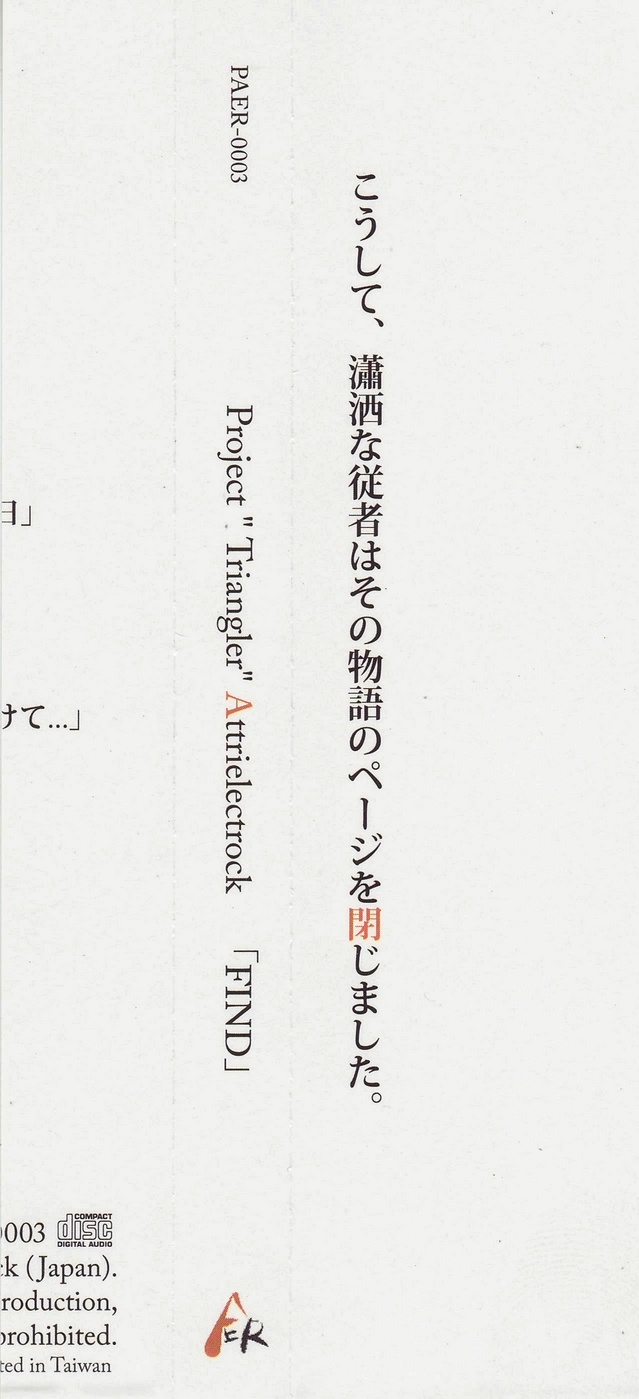 こうして、瀟洒な従者はその物語のページを閉じました。
PAER-0003
Project " Triangler" Attrielectrock 「FIND」
AER
日」
けて...」
0003 COMPACT disc DIGITAL AUDIO
ck (Japan).
roduction,
prohibited.
ted in Taiwan